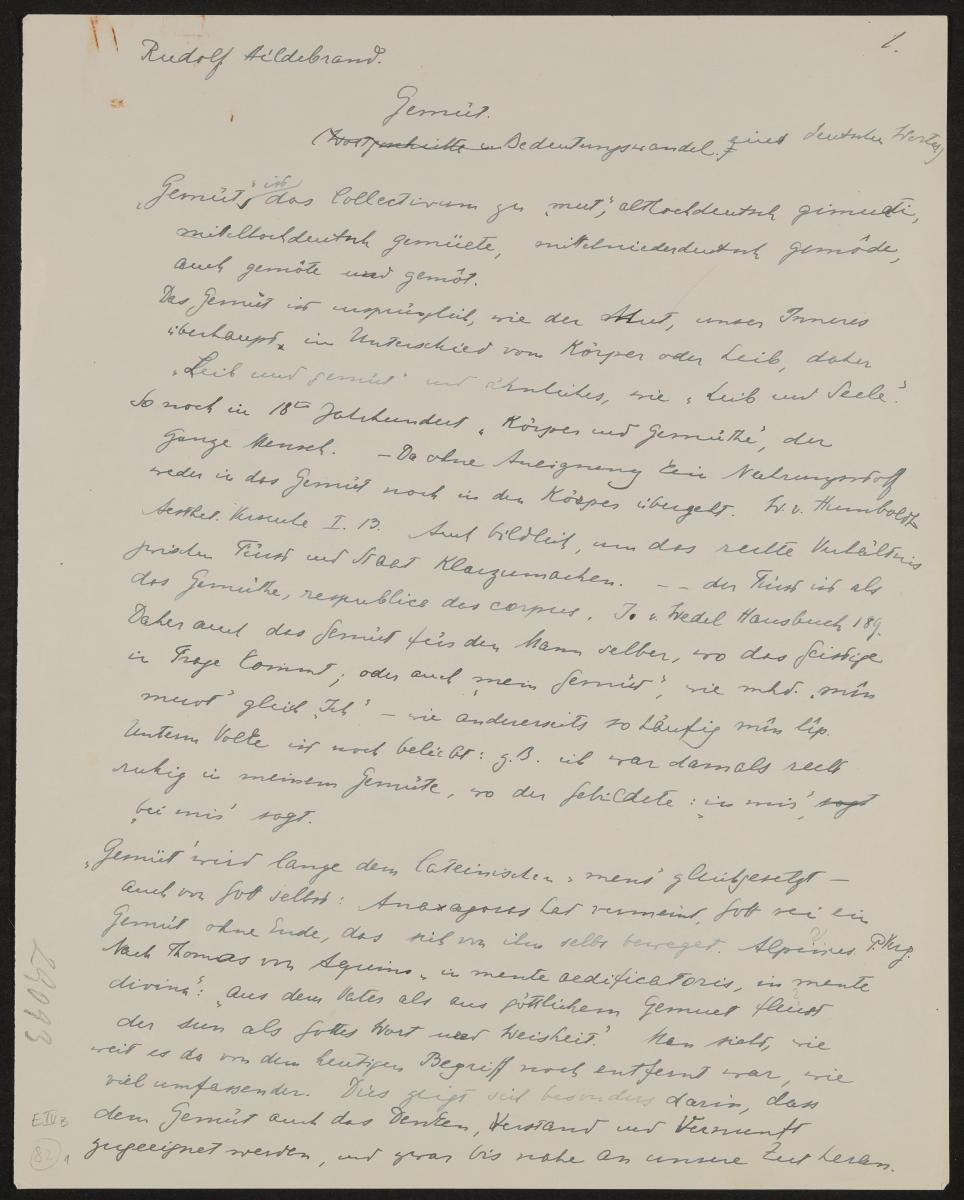 1.
Rudolf Hildebrand.
Gemüt.
(Wortgeschichte u Bedeutungswandel eines deutschen Wortes)
„Gemüt“, ist das Collectivum zu „mut“, althochdeutsch gimuati,
mittelhochdeutsch gemüete, mittelniederdeutsch gemôde,
auch gemöte und gemöt.
Das Gemüt ist ursprünglich, wie der Mut, unser Inneres
überhaupt, im Unterschied vom Körper oder Leib, daher
„Leib und gemüt“ und ähnliches, wie „Leib und Seele“.
So noch im 18ten Jahrhundert „Körper und Gemüthe“, der
ganze Mensch. – Da ohne Aneignung kein Nahrungsstoff
weder in das Gemüt noch in den Körper übergeht. W. v. Humboldt
Aesthet. Versuche I. 13. Auch bildlich, um das rechte Verhältnis
zwischen Fürst und Staat klarzumachen. – – der Fürst ist als
das Gemüthe, respublica das corpus. J. v. Wedel Hausbuch 189.
Daher auch das Gemüt für den Mann selber, wo das Geistige
in Frage kommt; oder auch „mein Gemüt“, wie mhd. „mîn
muot“ gleich „Ich“ – wie andererseits so häufig mîn lîp.
Unterm Volke ist noch beliebt: z.B. ich war damals recht
ruhig in meinem Gemüte, wo der Gebildete: „in mir“, sagt
„bei mir“ sagt.
„Gemüt“ wird lange dem lateinischen „mens“ gleichgesetzt –
auch von Gott selbst: Anaxagoras hat vermeint, Gott sei ein
Gemüt ohne Ende, das sich von ihm selbs beweget. P. Verg.
Nach Thomas von Aquino „in mente aedificatoris, in mente
divina“: „aus dem Vater als aus göttlichem Gemuet fleusst
der sun als Gottes Wort und Weisheit“. Man sieht, wie
weit es da von dem heutigen Begriff noch entfernt war, wie
viel umfassender. Dies zeigt sich besonders darin, dass
dem Gemüt auch das Denken, Verstand und Vernunft
zugeeignet werden, und zwar bis nahe an unsere Zeit heran.
29093
E IV 3
82
1